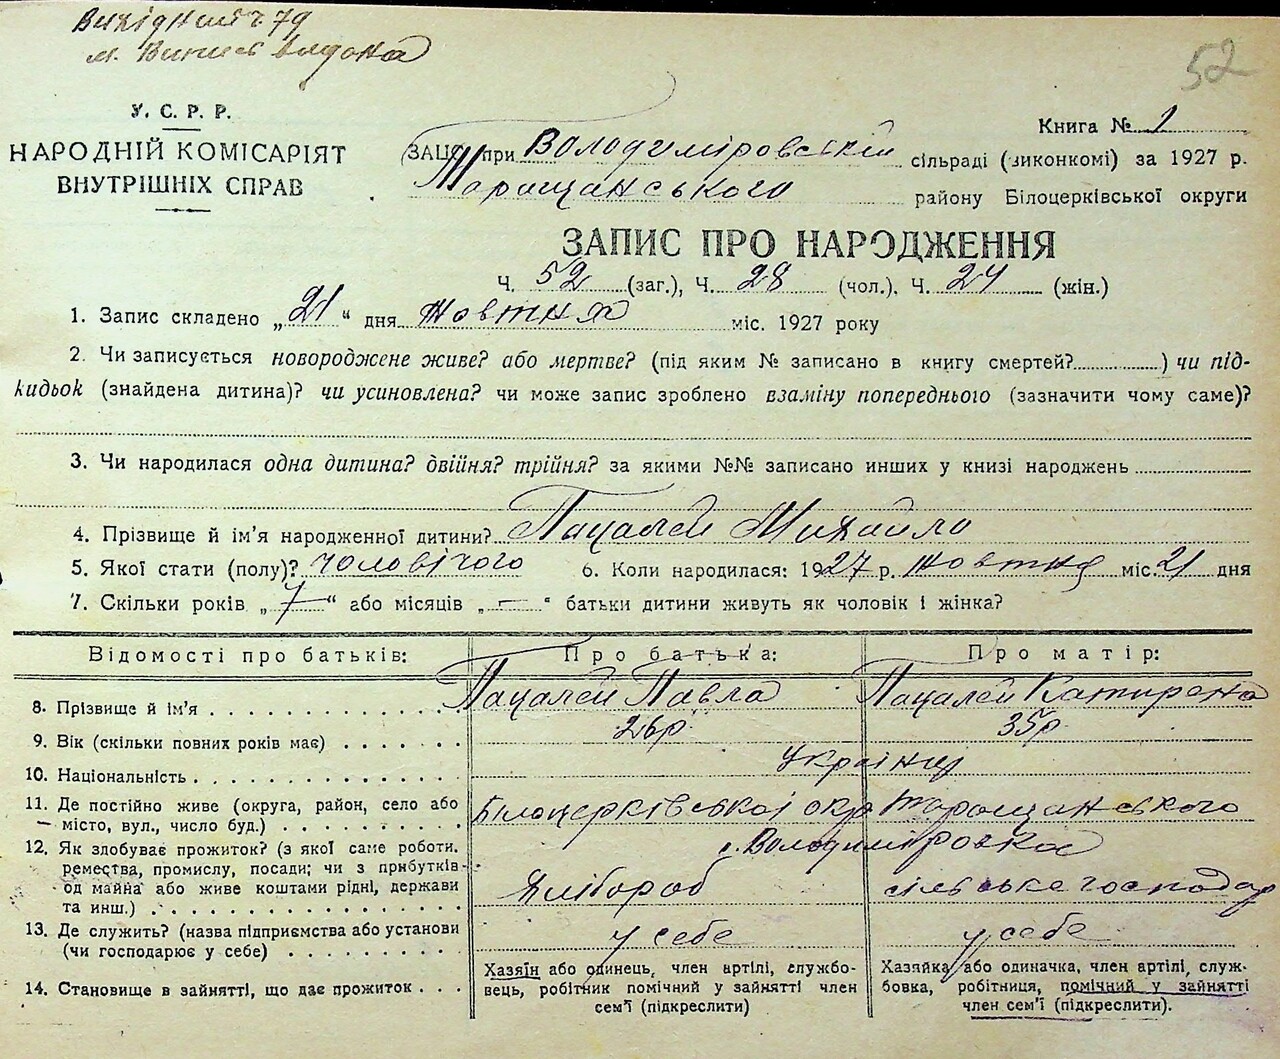 Вихідний ч. 79
м.
52
У. С. Р. Р.
НАРОДНІЙ КОМІСАРІЯТ
ВНУТРІШНІХ СПРАВ
Книга № 1
(ЗАЦС при Володимировскій сільраді (виконкомі) за 1927 р.
Таращанського району Білоцерківської округи
ЗАПИС ПРО НАРОДЖЕННЯ
Ч. 52 (заг.), Ч. 28 (чол.), Ч. 24 (жін.)
1. Запис складено „21“ дня жовтня міс. 1927 року
2. Чи записується новороджене живе? або мертве? (під яким № записано в книгу смертей?............) чи під-
кидьок (знайдена дитина)? чи усиновлена? чи може запис зроблено взаміну попереднього (зазначити чому саме)?
3. Чи народилася одна дитина? двійня? трійня? за якими №№ записано инших у книзі народжень
4. Прізвище й ім'я народженної дитини? Пацалей Михайло
5. Якої стати (полу)? чоловічого 6. Коли народилася: 1927 р. жовтня міс. 21 дня
7. Скільки років „7“ або місяців „—“ батьки дитини живуть як чоловік і жінка?
Відомості про батьків: Про батька: Про матір:
8. Прізвище й ім'я . . . Пацалей Павло Пацалей Катирена
9. Вік (скільки повних років має) . . . 26р. 35р.
10. Національність . . . Українці
11. Де постійно живе (округа, район, село або Білоцерківської окр Таращанського
місто, вул., число буд.) . . . с. Володиміровка
12. Як здобуває прожиток? (з якої саме роботи.
ремества, промислу, посади; чи з прибутків
од майна або живе коштами рідні, держави Хлібороб сільське господар
та инш.) . . .
13. Де служить? (назва підприємства або установи у себе у себе
(чи господарює у себе) . . .
14. Становище в зайнятті, що дає прожиток . . .
Хазяїн або одинець, член артілі, службо-
вець, робітник помічний у зайнятті член
сем'ї (підкреслити)
Хазяйка або одиначка, член артілі, служ-
бовка, робітниця, помічний у зайнятті
член сем'ї (підкреслити).